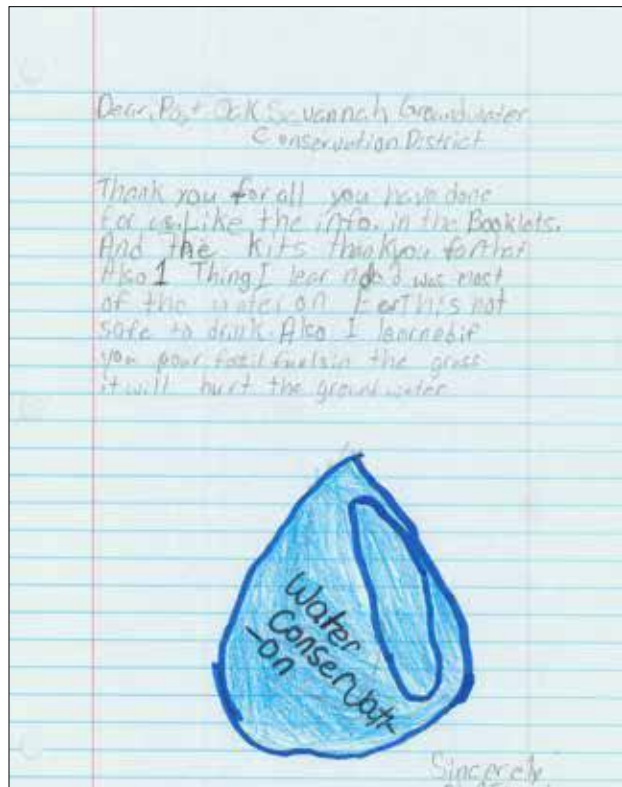 Dear, Post Oak Savannah Groundwater
Conservation District
Thank you for all you have done
for us. Like the info. in the Booklets.
And the kits thankyou forthat
Also 1 Thing I learnded was most
of the water on EarThis not
safe to drink. Also I learnedif
you pour fossil fuels in the grass
it will hurt the groundwater
Water
Conservati
-on
Sincerely